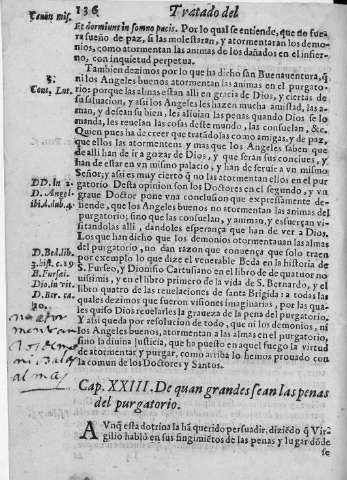 136 Tratado del
Canon mis.
Et dormiunt in somno pacis. Por lo qual se entiende, que no fuera
sueño de paz, si las molestaran, y atormentaran los demo-
nios, como atormentan las animas de los dañados en el infier-
no, con inquietud perpetua.
Tambien dezimos por lo que ha dicho san Buenauentura, q̃
3.
ni los Angeles buenos atormentan las animas en el purgato-
Cont. Lut.
rio: porque las almas estan alli en gracia de Dios, y ciertas de
su saluacion, y assi los Angeles les hazen mucha amistad, las a-
man, y dessean su bien, les aliuian las penas quando Dios se lo
manda, les reuelan las cosas deste mundo, las consuelan, &c.
Quien pues ha de creer que tratãdolas como amigas, y de paz,
que ellos las atormenten; y mas que los Angeles saben que
de alli han de ir a gozar de Dios, y que seràn sus conciues, y
han de estar en vn mismo palacio, y han de seruir a vn mismo
Señor; y assi es muy cierto q̃ no las atormentan ellos en el pur
DD. in 2.
gatorio. Desta opinion son los Doctores en el segundo, y vn
D. Angel.
graue Doctor pone vna conclusion que expressamente de-
ibi A. dub. 4.
fiende, que los Angeles buenos no atormentan las animas del
purgatorio; sino que las consuelan, y animan, y esfuerçan vi-
sitandolas alli, dandoles esperança que han de ver a Dios.
Los que han dicho que los demonios atormentauan las almas
D. Bed. lib.
del purgatorio, no dan razon que conuença que solo traen
3. hist. c. 19
por exemplo lo que dize el venerable Beda en la historia de
B. Fursei.
S. Furseo, y Dionisio Cartusiano en el libro de de quatuor no
Dio. in vit.
uissimis, y en el libro primero de la vida de S. Bernardo, y el
D. Ber. ca.
libro quatro de las reuelaciones de santa Brigida: a todas las
20.
quales dezimos que fueron visiones imaginarias, por las qua-
les quiso Dios reuelarles la graueza de la pena del purgatorio,
Y assi queda por resolucion de todo, que ni los demonios, ni
los Angeles buenos, atormentan a las almas en el purgatorio,
sino la diuina Iusticia, que ha puesto en aquel fuego la virtud
de atormentar y purgar, como arriba lo hemos prouado con
la comun de los Doctores y Santos.
no ator
mentan
los demo
ni
almas
Cap. XXIII. De quan grandes sean las penas
del purgatorio.
AVnq̃ esta dotrina la hã querido persuadir, diziẽdo q̃ Vir-
gilio hablò en sus fingimiẽtos de las penas y lugar dõde
se